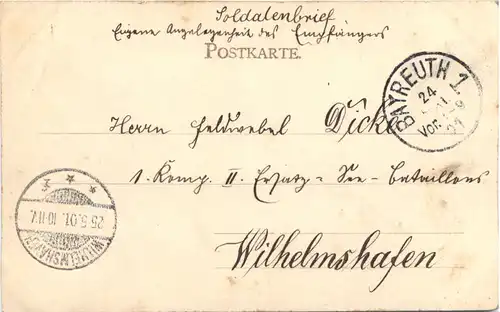 Soldatenbrief
Eigene Angelegenheit des Empfängers
POSTKARTE.
BAYREUTH 1
24
Vor.
Herrn Feldwebel Dicke
1. Komp. II. Ersatz-See-Bataillons
Wilhelmshafen
WILHELMSHAVEN
25.5.01.10-11V.